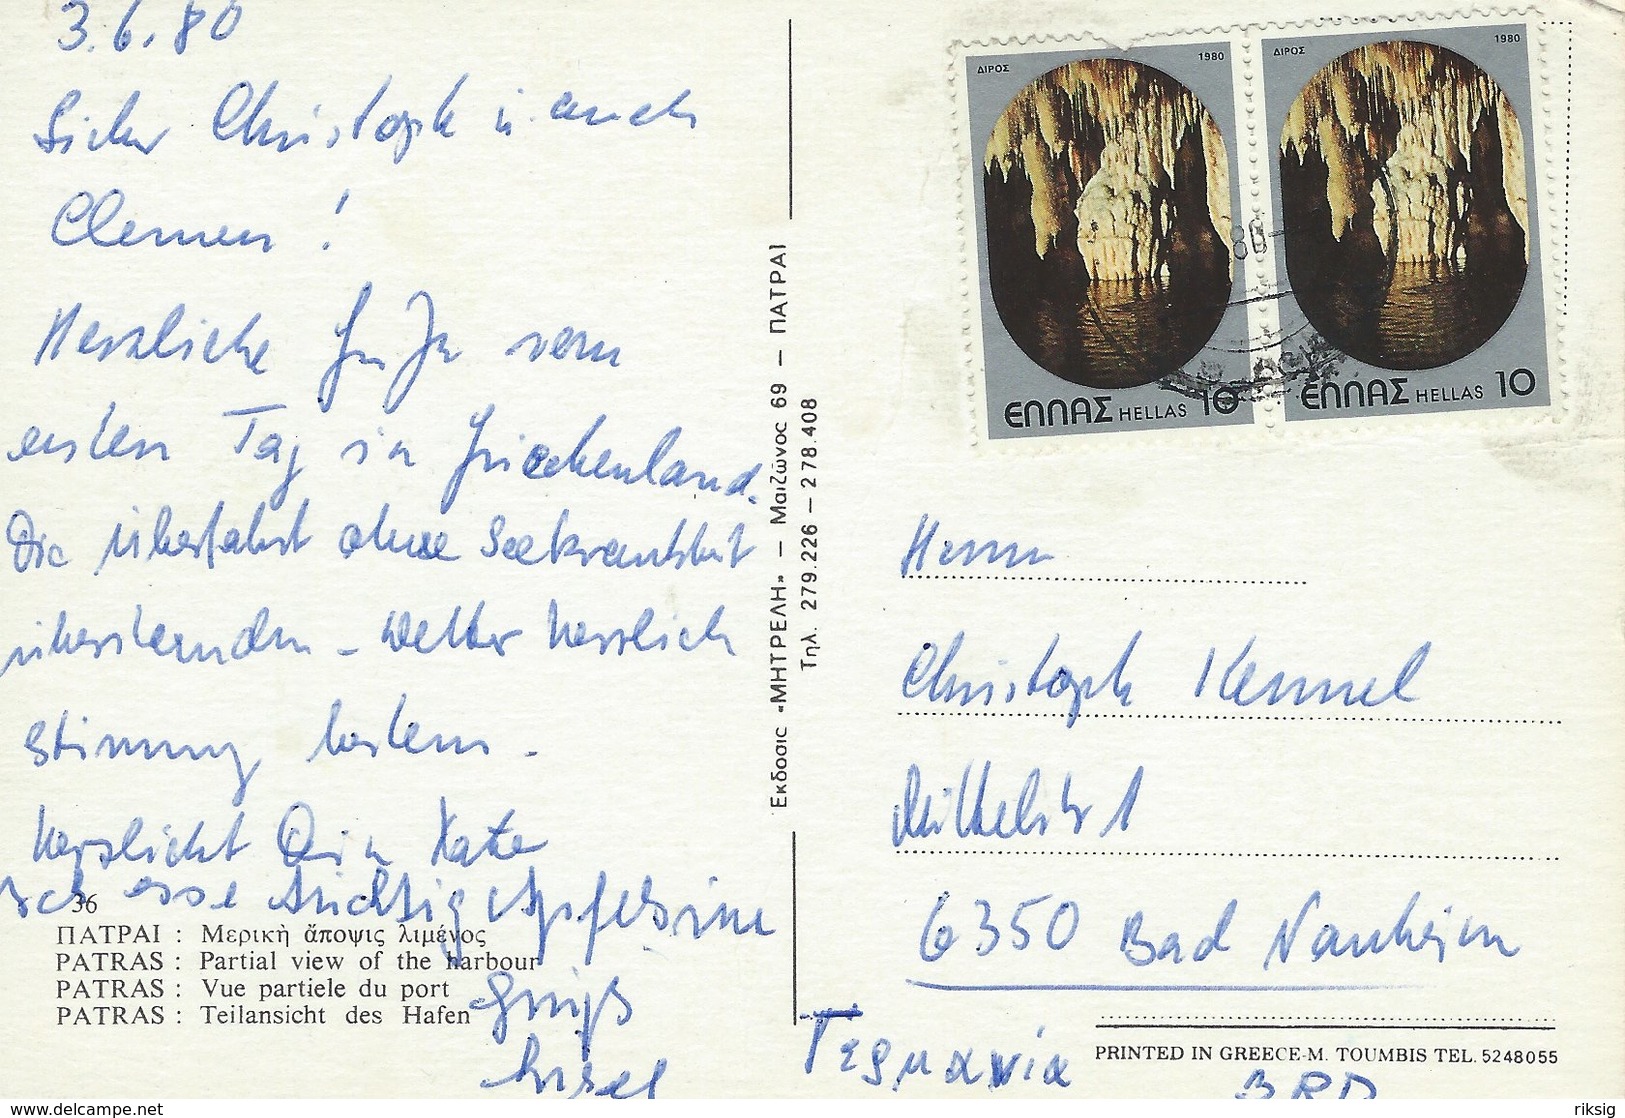 3.6.80
Lieber Christoph u. auch
Clemens!
Herzliche Grüße vom
ersten Tag in Griechenland.
Die Überfahrt ohne Seekrankheit
überstanden – Wetter herrlich
Stimmung bestens –
Herzlichst Dein Kater
Ich esse tüchtig Apfelsine
Gruß
36
ΠΑΤΡΑΙ : Μερικὴ ἄποψις λιμένος
PATRAS : Partial view of the harbour
PATRAS : Vue partiele du port
PATRAS : Teilansicht des Hafen
Εκδοσις «ΜΗΤΡΕΛΗ» – Μαιζῶνος 69 – ΠΑΤΡΑΙ
Τηλ. 279.226 – 278.408
ΔΙΡΟΣ 1980
ΕΛΛΑΣ HELLAS 10
ΔΙΡΟΣ 1980
ΕΛΛΑΣ HELLAS 10
80
Herrn
Christoph Kemmel
Mittelstr 1
6350 Bad Nauheim
Γερμανία
BRD
PRINTED IN GREECE-M. TOUMBIS TEL. 5248055
www.delcampe.net
riksig